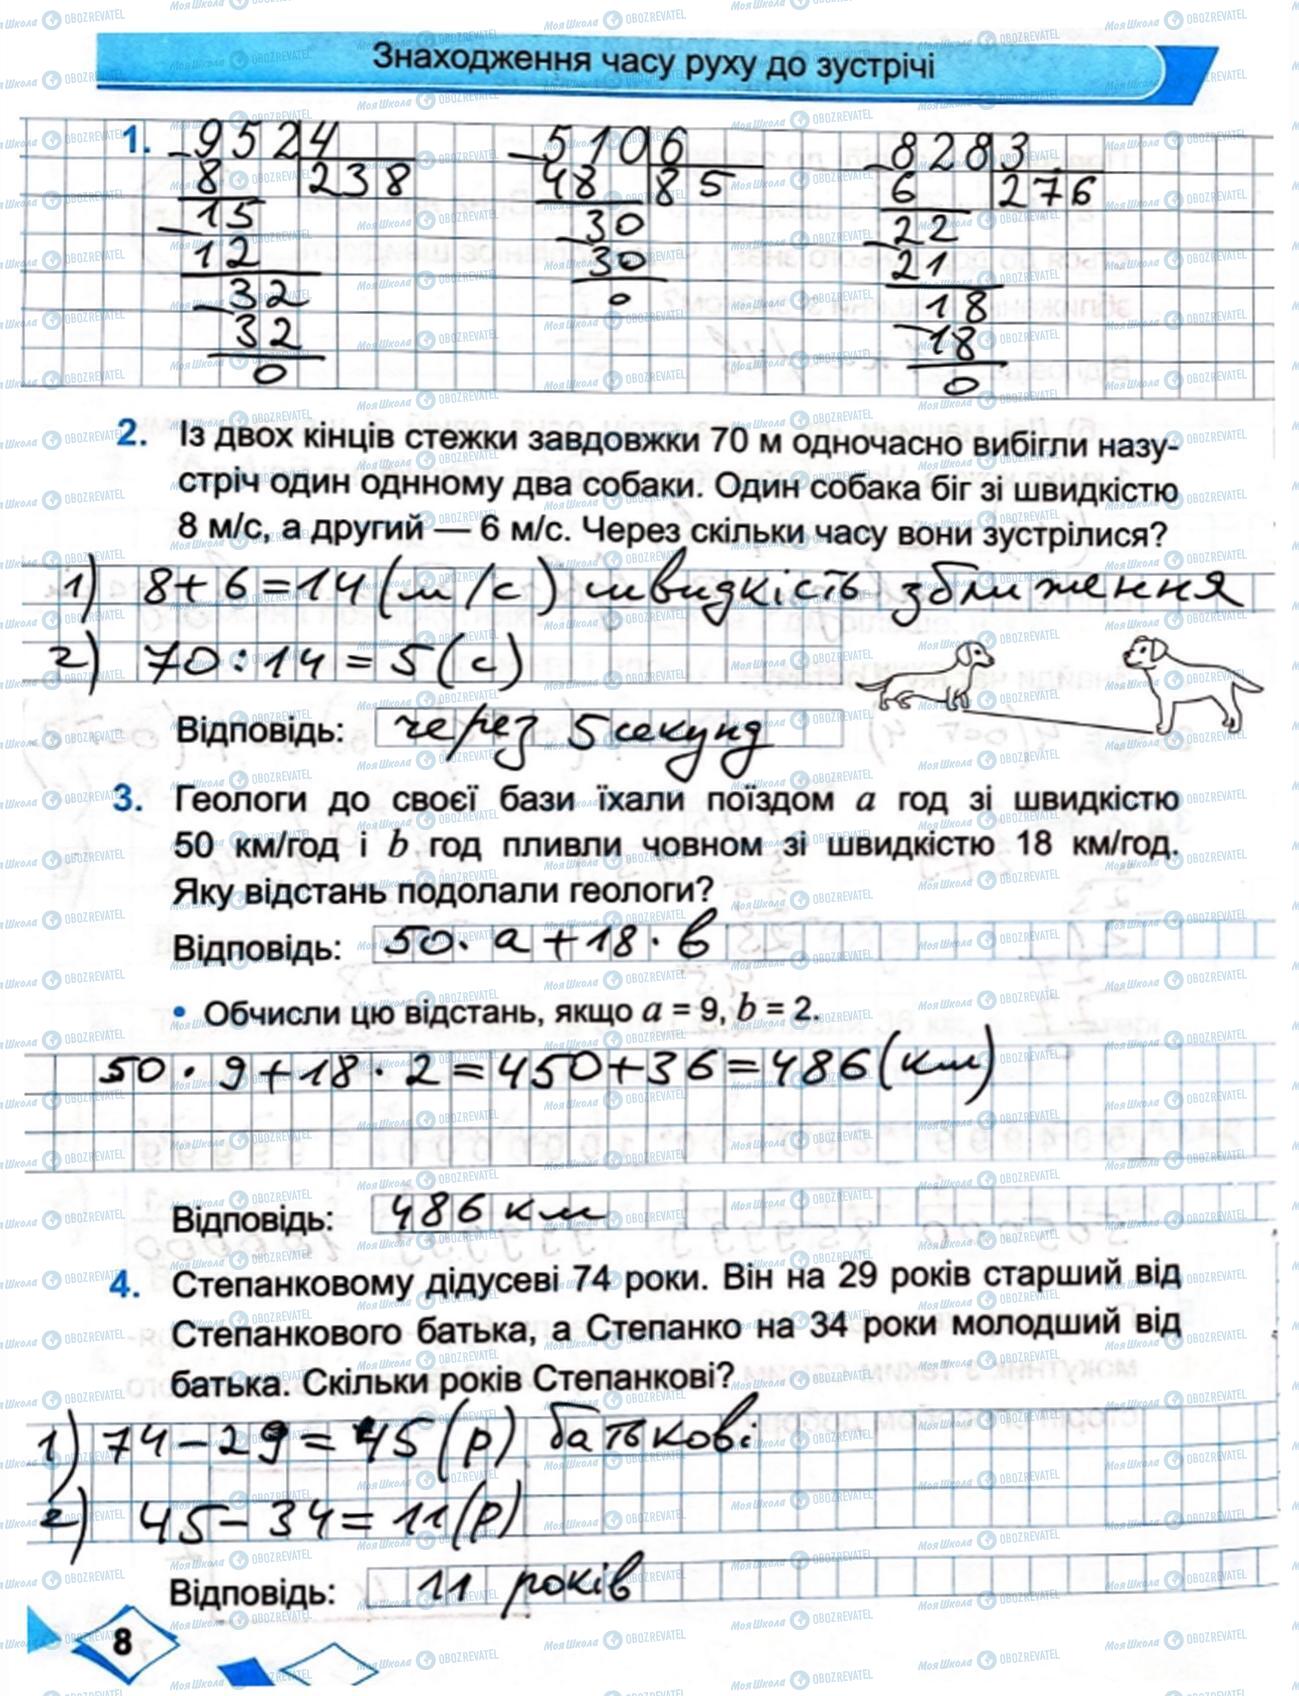 Знаходження часу руху до зустрічі
1. 9524 5106 8283
8 238 48 85 6 276
15 30 22
12 30 21
32 0 18
32 18
0 0
2. Із двох кінців стежки завдовжки 70 м одночасно вибігли назу-
стріч один однному два собаки. Один собака біг зі швидкістю
8 м/с, а другий — 6 м/с. Через скільки часу вони зустрілися?
1) 8+6=14(м/с) швидкість зближення
2) 70:14=5(с)
Відповідь: через 5 секунд
3. Геологи до своєї бази їхали поїздом a год зі швидкістю
50 км/год і b год пливли човном зі швидкістю 18 км/год.
Яку відстань подолали геологи?
Відповідь: 50·a+18·в
• Обчисли цю відстань, якщо a = 9, b = 2.
50·9+18·2=450+36=486(км)
Відповідь: 486 км
4. Степанковому дідусеві 74 роки. Він на 29 років старший від
Степанкового батька, а Степанко на 34 роки молодший від
батька. Скільки років Степанкові?
1) 74-29=45(р) батькові
2) 45-34=11(р)
Відповідь: 11 років
8